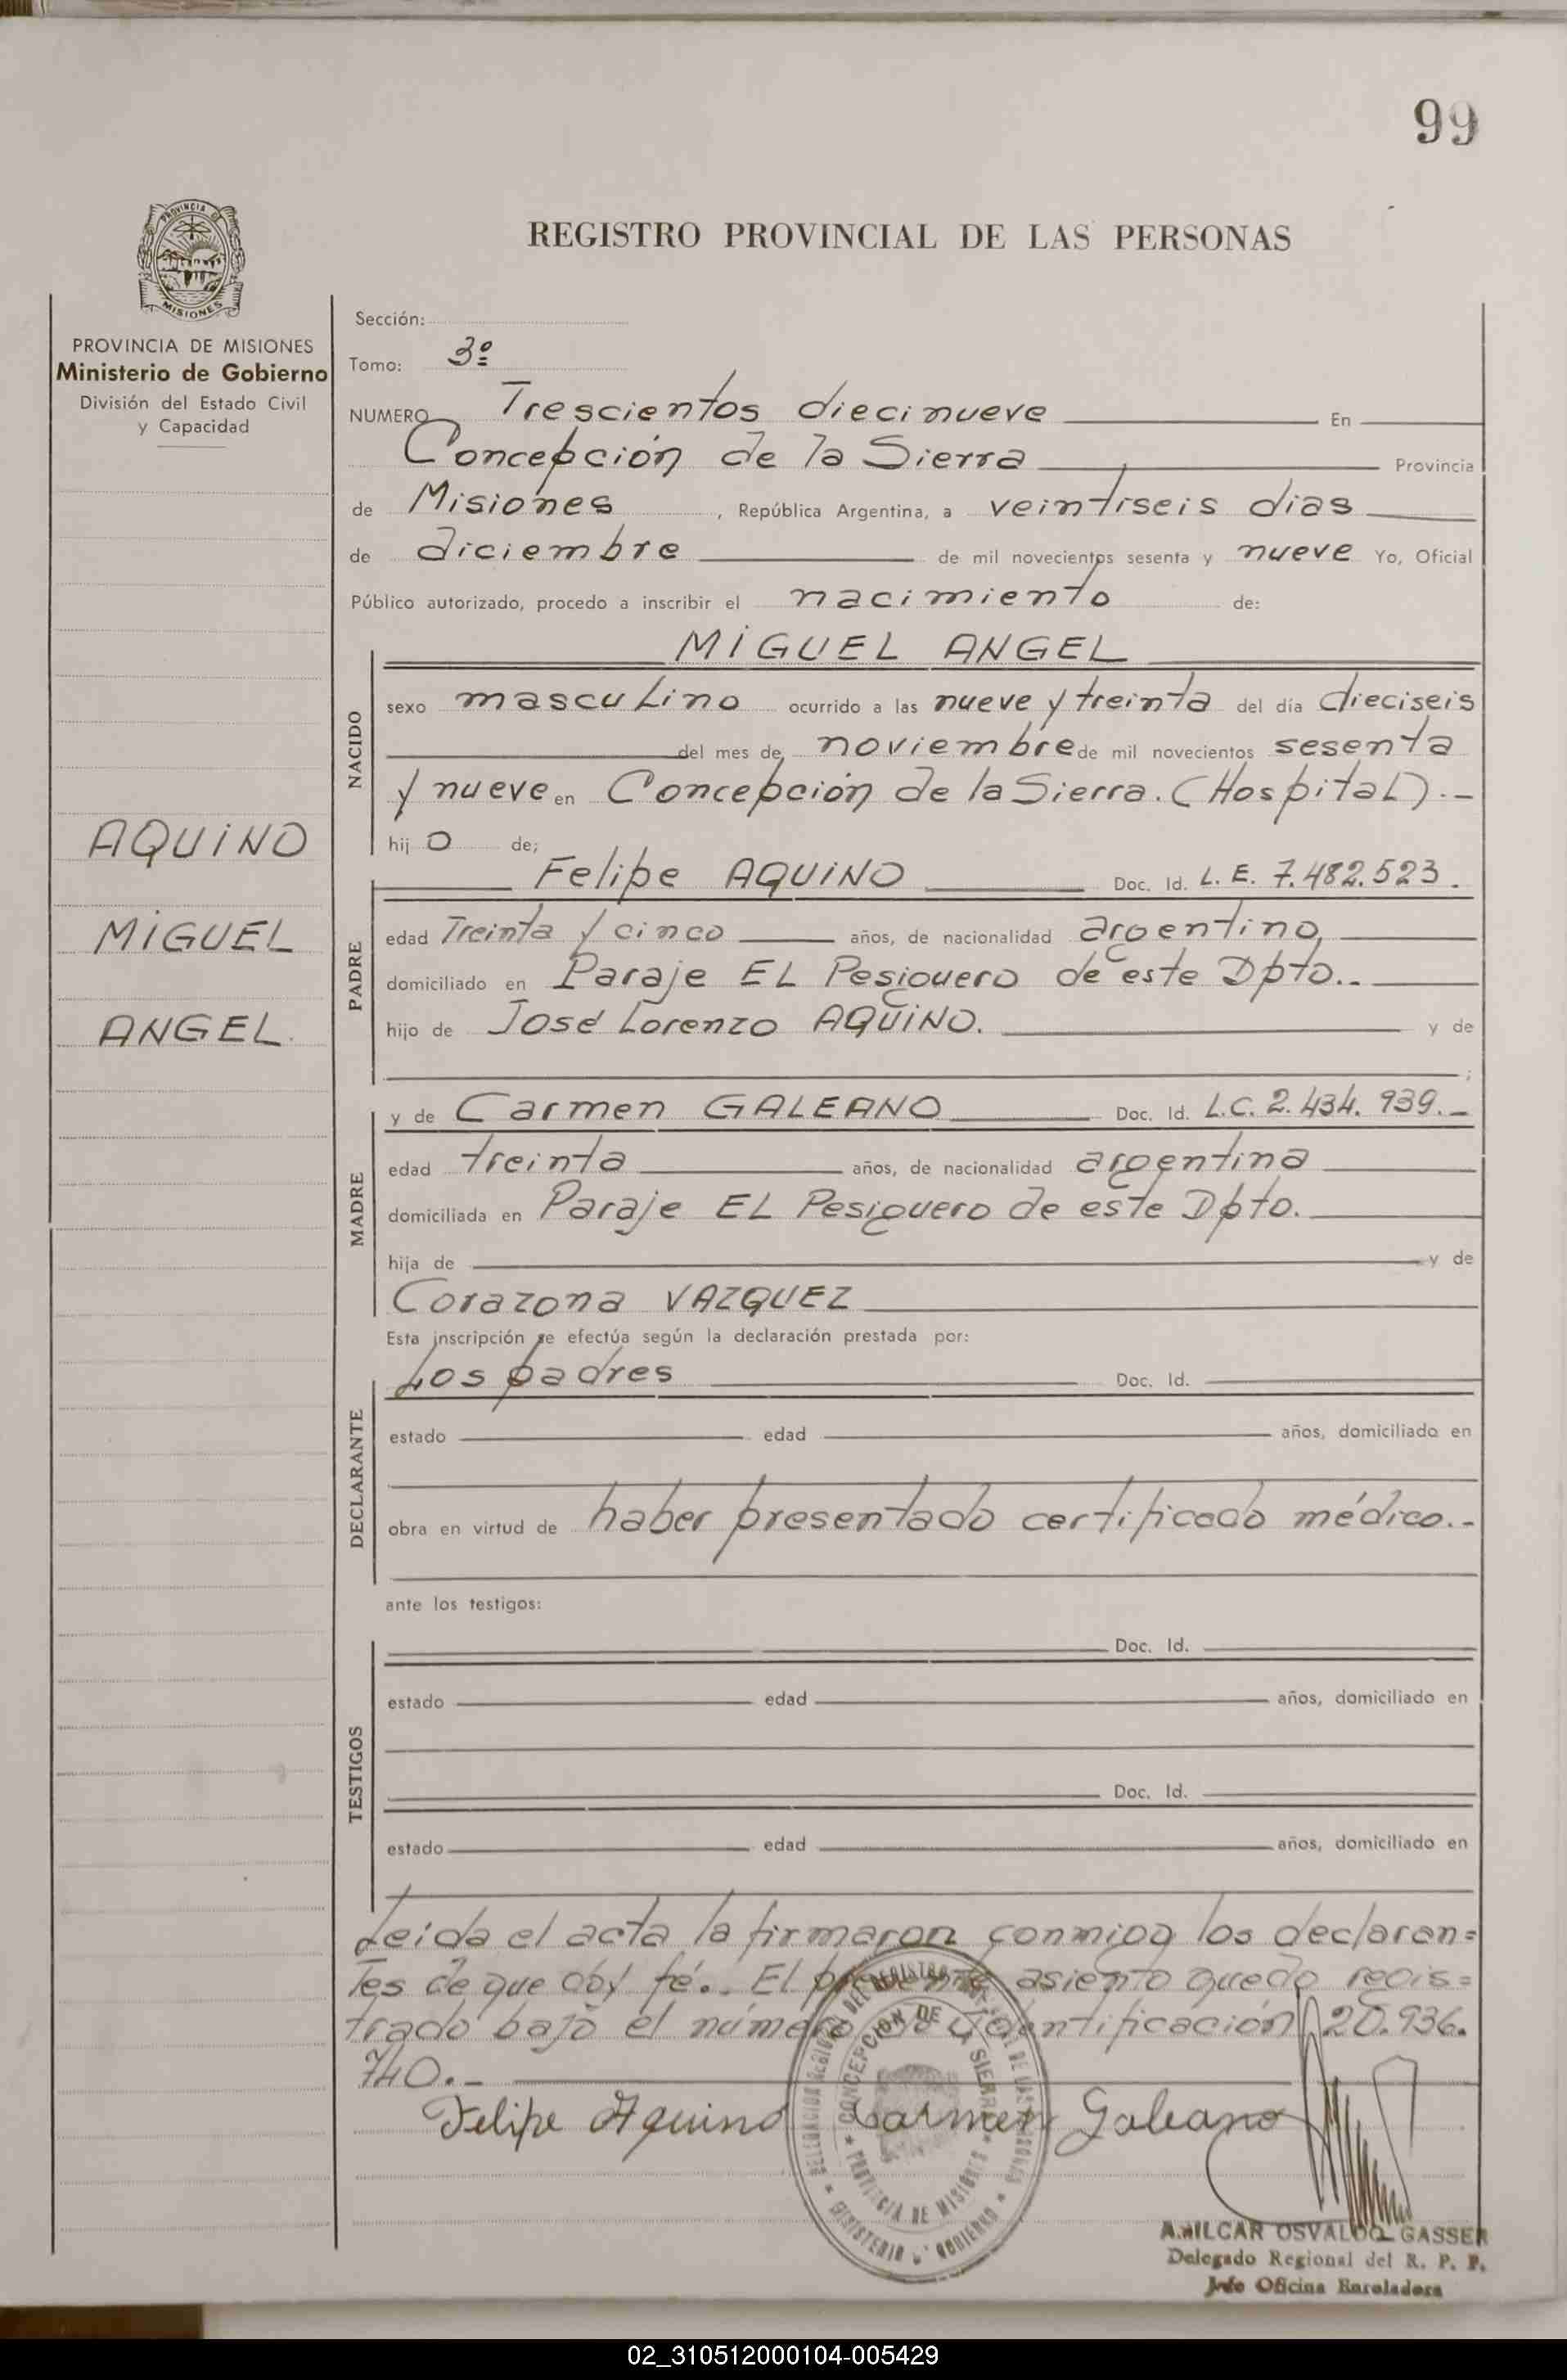 99
PROVINCIA DE
MISIONES
REGISTRO PROVINCIAL DE LAS PERSONAS
PROVINCIA DE MISIONES
Ministerio de Gobierno
División del Estado Civil
y Capacidad
AQUINO
MIGUEL
ANGEL.
Sección:
Tomo: 3º
NUMERO Trescientos diecinueve En
Concepción de la Sierra Provincia
de Misiones, República Argentina, a veintiseis dias
de diciembre de mil novecientos sesenta y nueve Yo, Oficial
Público autorizado, procedo a inscribir el nacimiento de:
NACIDO
MIGUEL ANGEL
sexo masculino ocurrido a las nueve y treinta del día dieciseis
del mes de noviembre de mil novecientos sesenta
y nueve en Concepción de la Sierra. (Hospital).-
hijo de;
PADRE
Felipe AQUINO Doc. Id. L. E. 7.482.523.
edad Treinta y cinco años, de nacionalidad argentino,
domiciliado en Paraje EL Pesiguero de este Dpto..
hijo de José Lorenzo AQUINO. y de
;
MADRE
y de Carmen GALEANO Doc. Id. L.C. 2.434.939.-
edad treinta años, de nacionalidad argentina
domiciliada en Paraje EL Pesiguero de este Dpto.
hija de y de
Corazona VAZQUEZ
Esta inscripción se efectúa según la declaración prestada por:
DECLARANTE
Los padres Doc. Id.
estado edad años, domiciliado en
obra en virtud de haber presentado certificado médico.-
ante los testigos:
TESTIGOS
Doc. Id.
estado edad años, domiciliado en
Doc. Id.
estado edad años, domiciliado en
Leída el acta la firmaron conmigo los declaran=
tes de que doy fé.. El presente asiento quedo regis=
trado bajo el número de identificación 20.936.
740.-
Felipe Aquino Carmen Galeano
DELEGACION REGIONAL DEL REGISTRO DE LAS PERSONAS
CONCEPCION DE LA SIERRA
PROVINCIA DE MISIONES
MINISTERIO DE GOBIERNO
AMILCAR OSVALDO GASSER
Delegado Regional del R. P. P.
Jefe Oficina Enroladora
02_310512000104-005429